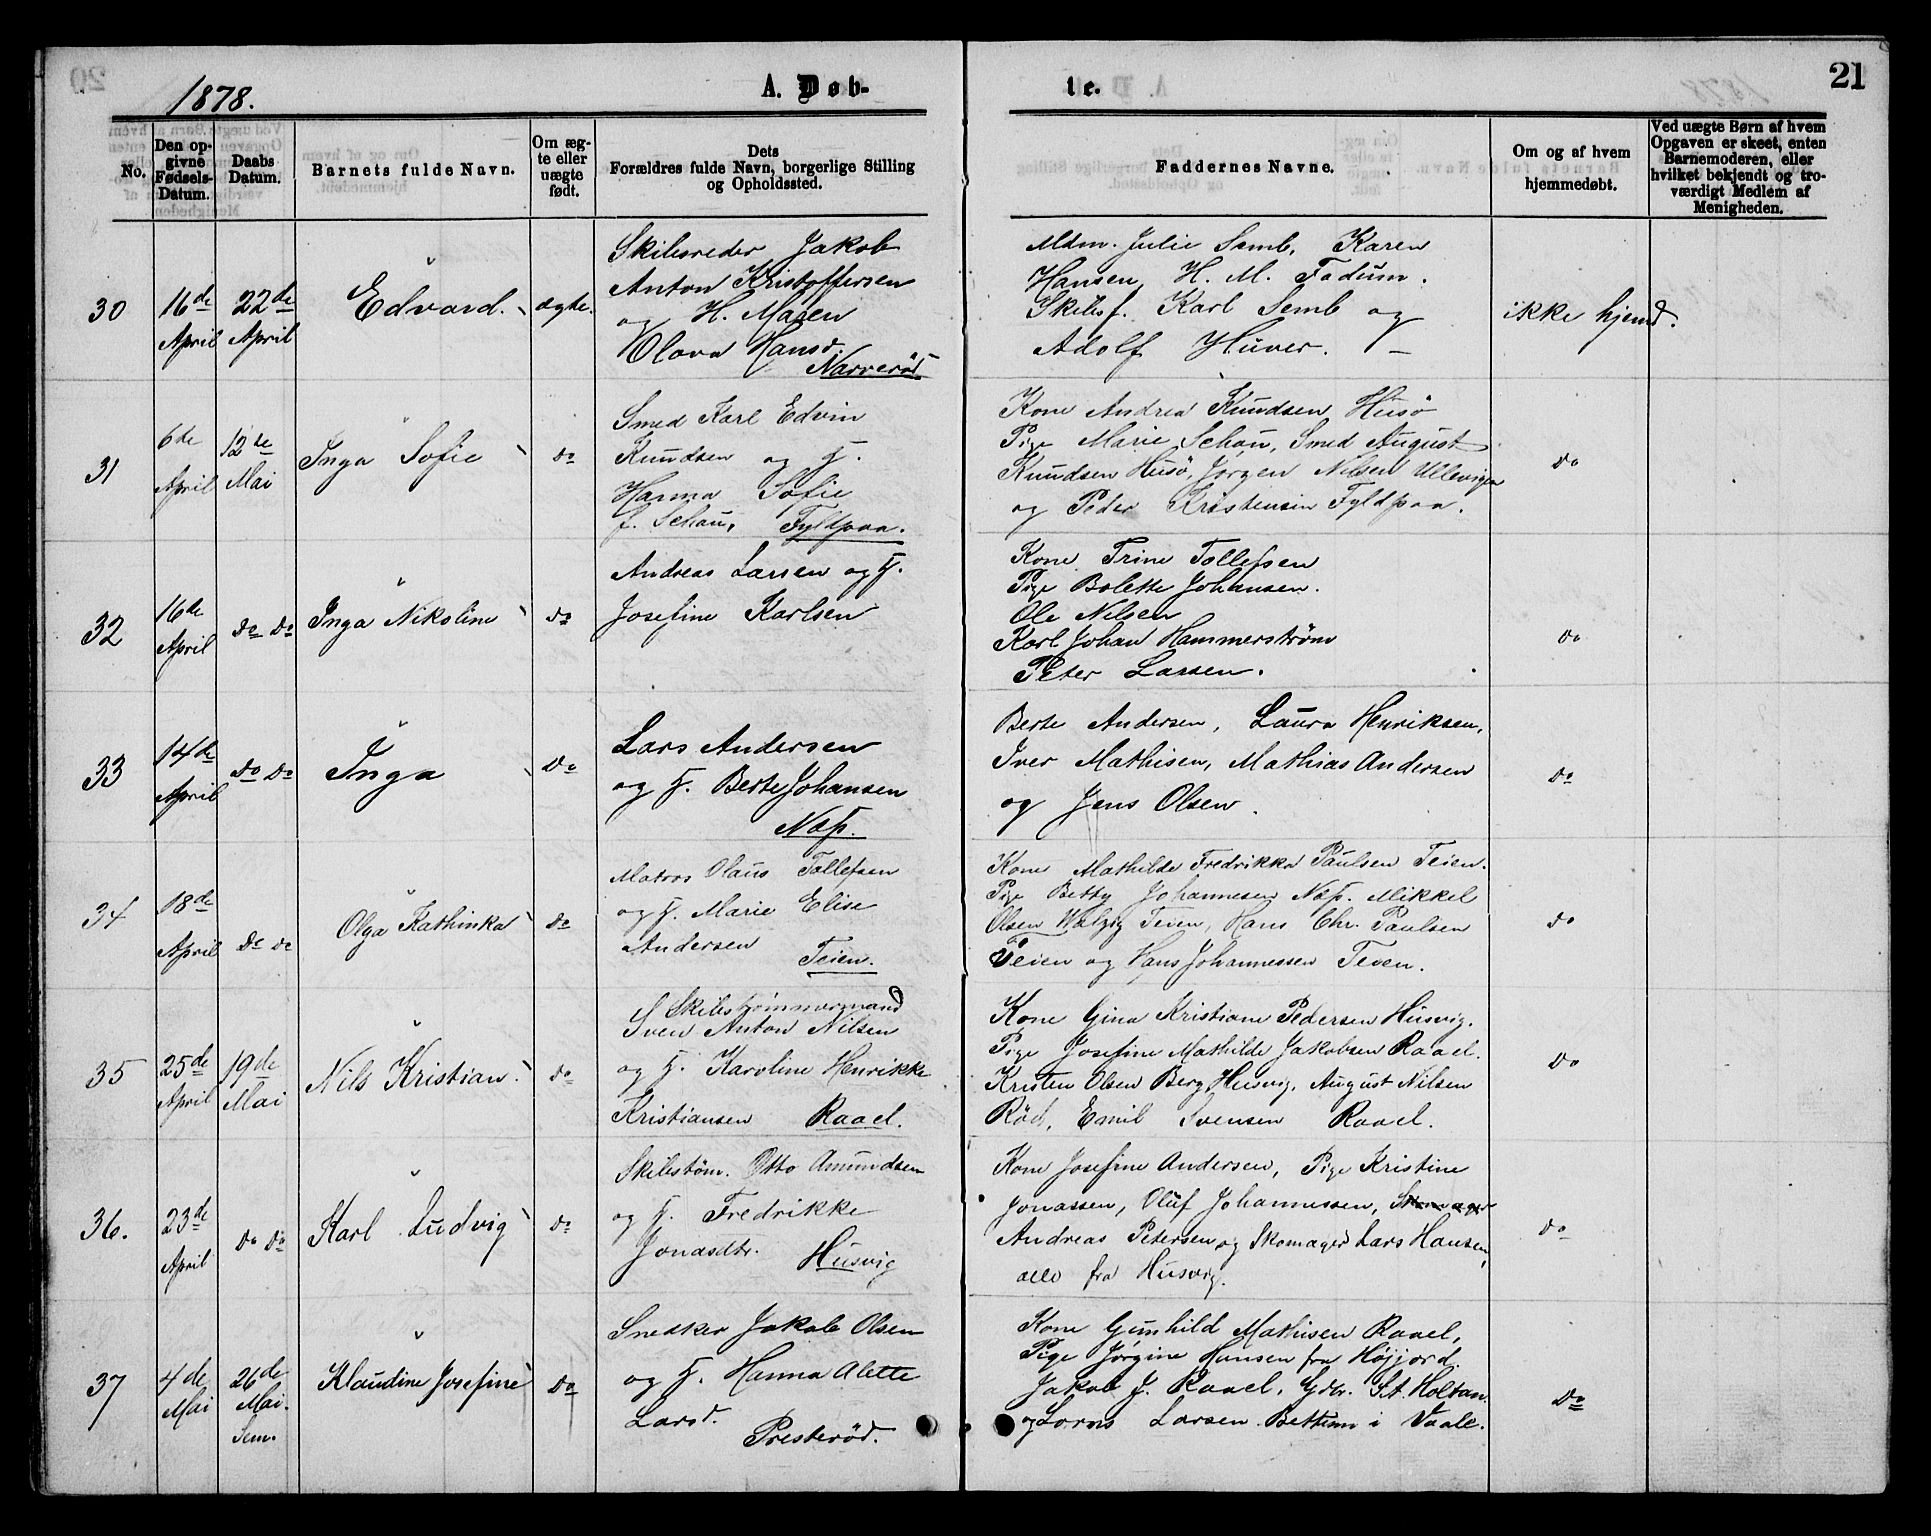 1878.
A. Døb-
te.
21
No.
Den op-
givne
Fødsels-
Datum.
Daabs
Datum.
Barnets fulde Navn.
Om æg-
te eller
uægte
født.
Dets
Forældres fulde Navn, borgerlige Stilling
og Opholdssted.
Faddernes Navne.
Om og af hvem
hjemmedøbt.
Ved uægte Børn af hvem
Opgaven er skeet, enten
Barnemoderen, eller
hvilket bekjendt og tro-
værdigt Medlem af
Menigheden.
30
16de
April
22de
April
Edvard.
ægte.
Skibsreder Jakob
Anton Kristoffersen
og H. Maren
Olava Hansd.
Narverød
Mdm. Julie Semb, Karen
Hansen, H. M. Fadum.
Skibsf. Karl Semb og
Adolf Huver. —
ikke hjemd.
31
6de
April
12te
Mai
Inga Sofie
do
Smed Karl Edvin
Knudsen og H.
Hanna Sofie
f. Schau, Fyldpaa.
Kone Andrea Knudsen Husö
Pige Marie Schau, Smed August
Knudsen Husö, Jørgen Nilsen Ullevigen
og Peder Kristensen Fyldpaa.
do
32
16de
April
do do
Inga Nikoline
do
Andreas Larsen og H.
Josefine Karlsen
Kone Trine Tollefsen
Pige Bolette Johansen.
Ole Nilsen
Karl Johan Hammerstrøm
Peter Larsen.
do
33
14de
April
do do
Inga
do
Lars Andersen
og H. Berte Johansen
Næs.
Berte Andersen, Laura Henriksen,
Iver Mathisen, Mathias Andersen
og Jens Olsen.
do
34
18de
April
do do
Olga Kathinka
do
Matros Olaus Tollefsen
og H. Marie Elise
Andersen
Teien.
Kone Mathilde Fredrikka Paulsen Teien.
Pige Betty Johannesen Næs. Mikkel
Olsen Teien, Hans Chr. Paulsen
Teien og Hans Johannessen Teien.
do
35
25de
April
19de
Mai
Nils Kristian.
do
Skibstømmermand
Sven Anton Nilsen
og H. Karoline Henrikke
Kristiansen Raael.
Kone Gina Kristiane Pedersen Husvig.
Pige Josefine Mathilde Jakobsen Raael.
Kristen Olsen Berg Husvig, August Nilsen
Röd, Emil Svensen Raael.
do
36.
23de
April
do do
Karl Ludvig
do
Skibstöm. Otto Amundsen
og H. Fredrikke
Jonasdtr. Husvig
Kone Josefine Andersen, Pige Kristine
Jonassen, Oluf Johannessen,
Andreas Petersen og Skomager Lars Hansen,
alle fra Husvig.
do
37
4de
Mai
26de
Mai.
Sem.
Klaudine Josefine
do
Snedker Jakob Olsen
og H. Hanna Alette
Larsd.
Presterød.
Kone Gunhild Mathisen Raael,
Pige Jørgine Hansen fra Højjord.
Jakob J. Raael, Gdbr. St. Holtan
og Larsen i Vaale.
do